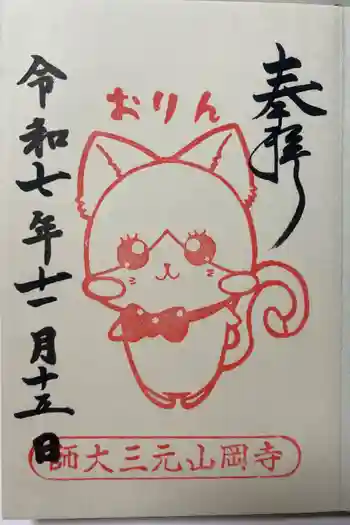 奉拝
おりん
令和七年十一月十五日
師大三元山岡寺